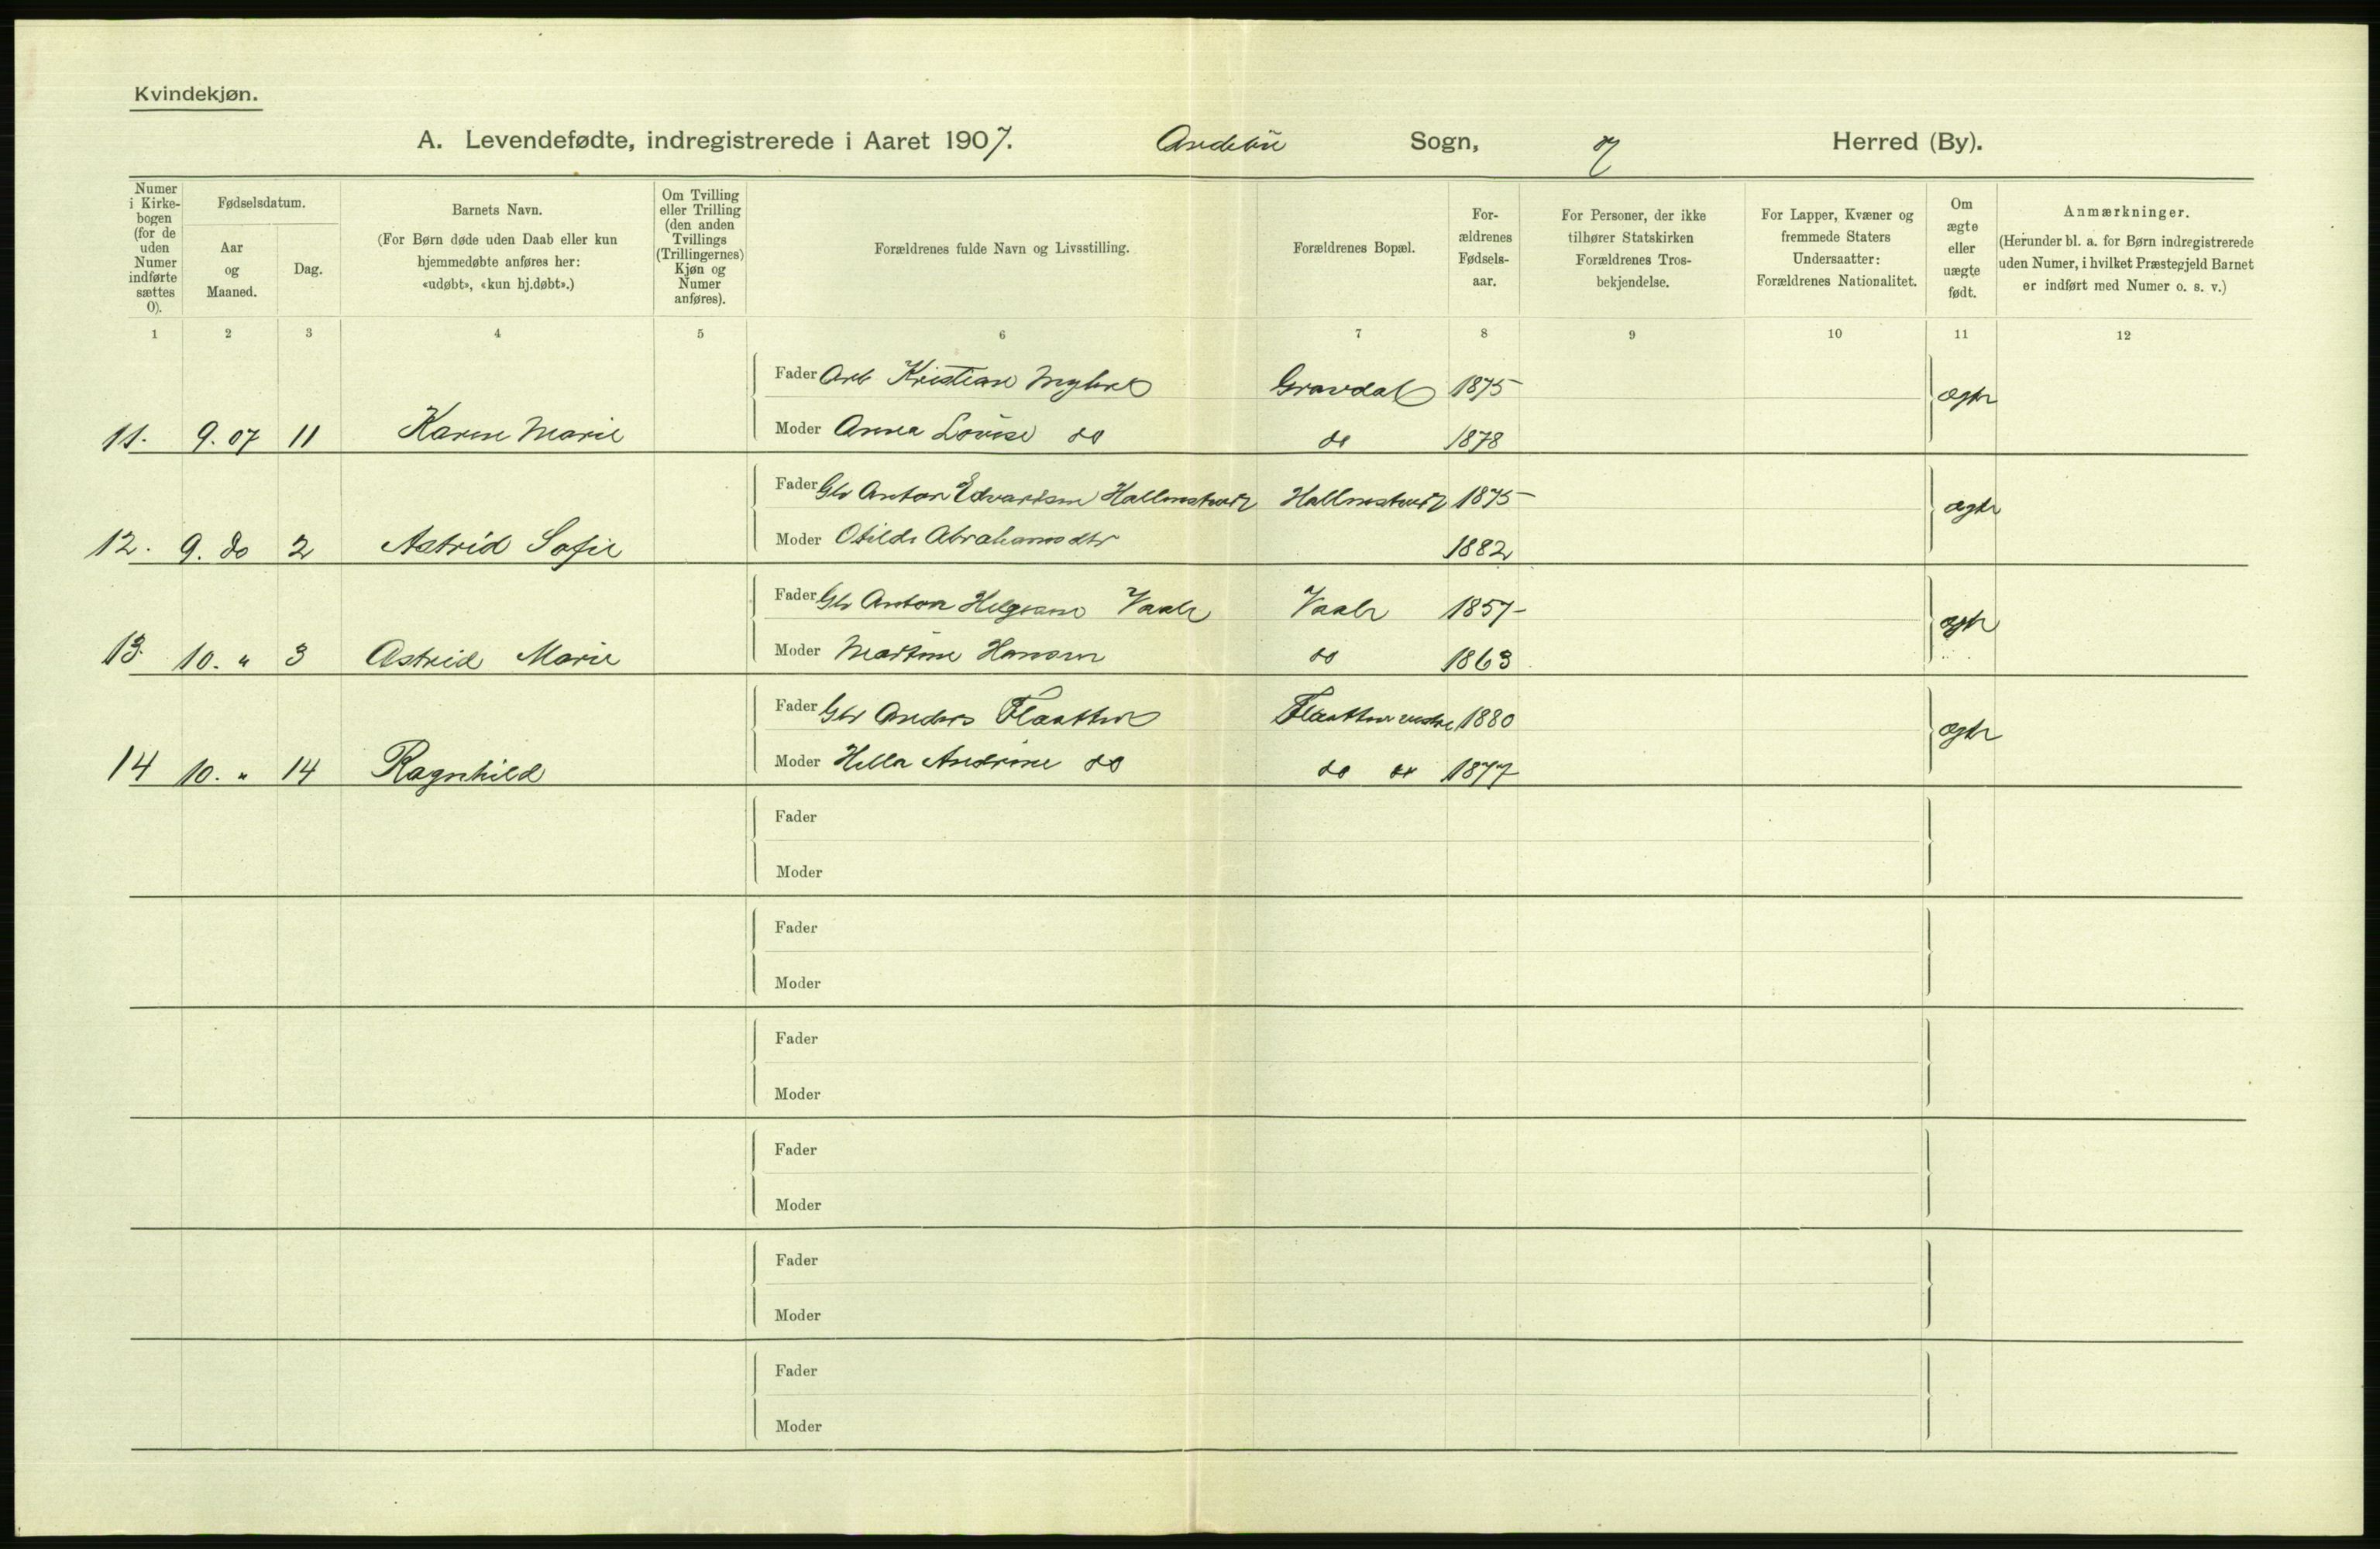 Kvindekjøn.
A. Levendefødte, indregistrerede i Aaret 1907. Andebu Sogn, Herred (By).
Numer i Kirke-bogen (for de uden Numer indførte sættes 0).
Fødselsdatum.
Aar og Maaned.
Dag.
Barnets Navn.
(For Børn døde uden Daab eller kun hjemmedøbte anføres her: «udøbt», «kun hj.døbt».)
Om Tvilling eller Trilling (den anden Tvillings (Trillingernes) Kjøn og Numer anføres).
Forældrenes fulde Navn og Livsstilling.
Forældrenes Bopæl.
For-ældrenes Fødsels-aar.
For Personer, der ikke tilhører Statskirken Forældrenes Tros-bekjendelse.
For Lapper, Kvæner og fremmede Staters Undersaatter: Forældrenes Nationalitet.
Om ægte eller uægte født.
Anmærkninger.
(Herunder bl. a. for Børn indregistrerede uden Numer, i hvilket Præstegjeld Barnet er indført med Numer o. s. v.)
1 2 3 4 5 6 7 8 9 10 11 12
Fader Arb Kristian Myhre Gravdal 1875 ægte
11. 9. 07 11 Karen Marie Moder Anna Lovise do do 1878
Fader Gbr Anton Edvardsen Hallenstvedt Hallenstvedt 1875 ægte
12. 9. do 2 Astrid Sofie Moder Otilde Abrahamsdtr 1882
Fader Gbr Anton Helgesen Vaale Vaale 1857 ægte
13. 10. " 3 Astrid Marie Moder Martine Hansen do 1863
Fader Gbr Anders Flaatten Flaatten vestre 1880 ægte
14 10. " 14 Ragnhild Moder Hella Andrine do do do 1877
Fader
Moder
Fader
Moder
Fader
Moder
Fader
Moder
Fader
Moder
Fader
Moder